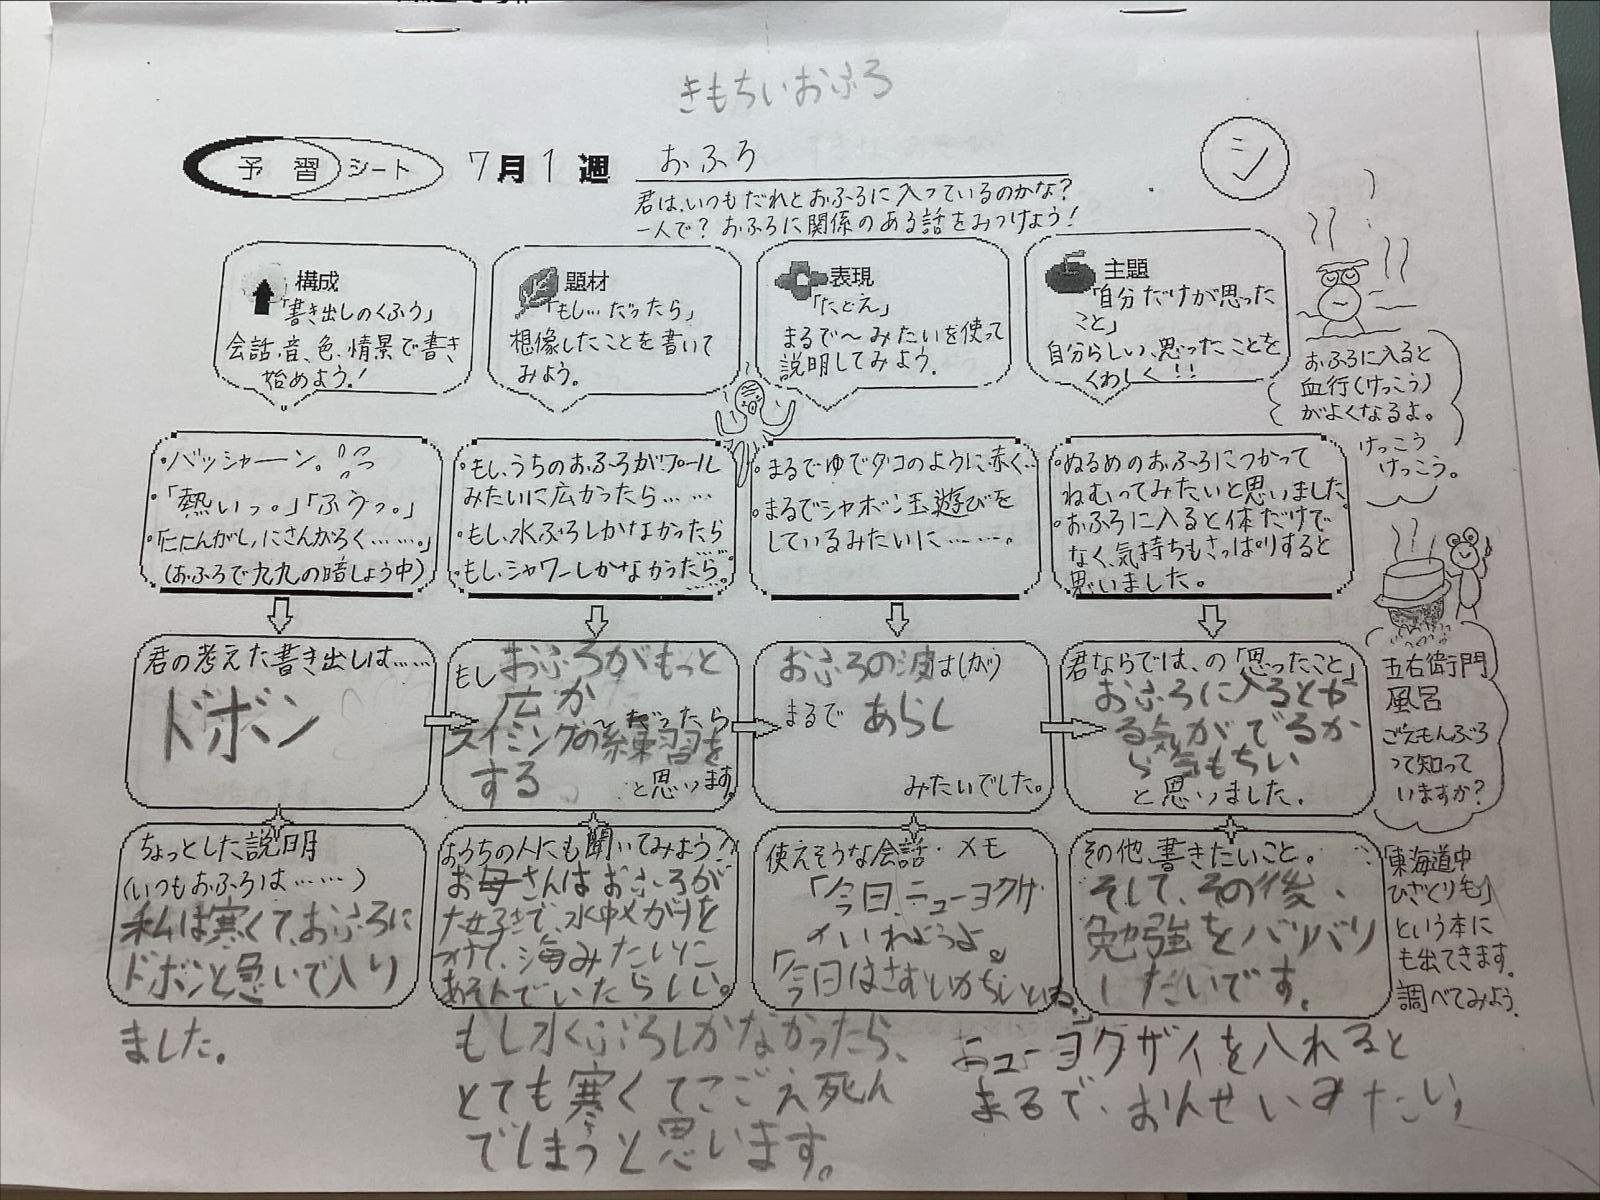 きもちいおふろ
予習シート 7月1週 おふろ
シ
君は、いつもだれとおふろに入っているのかな?
一人で? おふろに関係のある話をみつけよう!
構成
「書き出しのくふう」
会話、音、色、情景で書き
始めよう!
題材
「もし…だったら」
想像したことを書いて
みよう。
表現
「たとえ」
まるで〜みたいを使って
説明してみよう。
主題
「自分だけが思った
こと」
自分らしい、思ったことを
くわしく!!
おふろに入ると
血行(けっこう)
がよくなるよ。
けっこう
けっこう。
・バッシャーン。
・「熱いっ。」「ふうっ。」
・「ににんがし、にさんがろく……。」
(おふろで九九の暗しょう中)
・もし、うちのおふろがプール
みたいに広かったら……
・もし、水ぶろしかなかったら
・もし、シャワーしかなかったら…
・まるでゆでダコのように赤く…
・まるでシャボン玉遊びを
しているみたいに……。
・ぬるめのおふろにつかって
ねむってみたいと思いました
・おふろに入ると体だけで
なく、気持ちもさっぱりすると
思いました。
君の考えた書き出しは……
ドボン
もし おふろがもっと
広か
だったら
スイミングの練習を
する
と思います。
おふろの波は(が)
まるで あらし
みたいでした。
君ならでは、の「思ったこと」
おふろに入るとか
る気がでるか
ら気もちい
と思いました。
五右衛門
風呂
ごえもんぶろ
って知って
いますか?
ちょっとした説明
(いつもおふろは……)
私は寒くて、おふろに
ドボンと急いで入り
ました。
おうちの人にも聞いてみよう!
お母さんはおふろが
大好きで、水中メガネを
つけて、海みたいに
あそんでいたらしい。
もし水くぶろしかなかったら、
とても寒くてこごえ死ん
でしまうと思います。
使えそうな会話・メモ
「今日、ニューヨクザ
イいれようよ。
「今日はさむいから
その他、書きたいこと。
そして、その後、
勉強をバリバリ
したいです。
ニューヨクザイを入れると
まるで、おんせいみたい
「東海道中
ひざくり毛」
という本に
も出てきます。
調べてみよう。